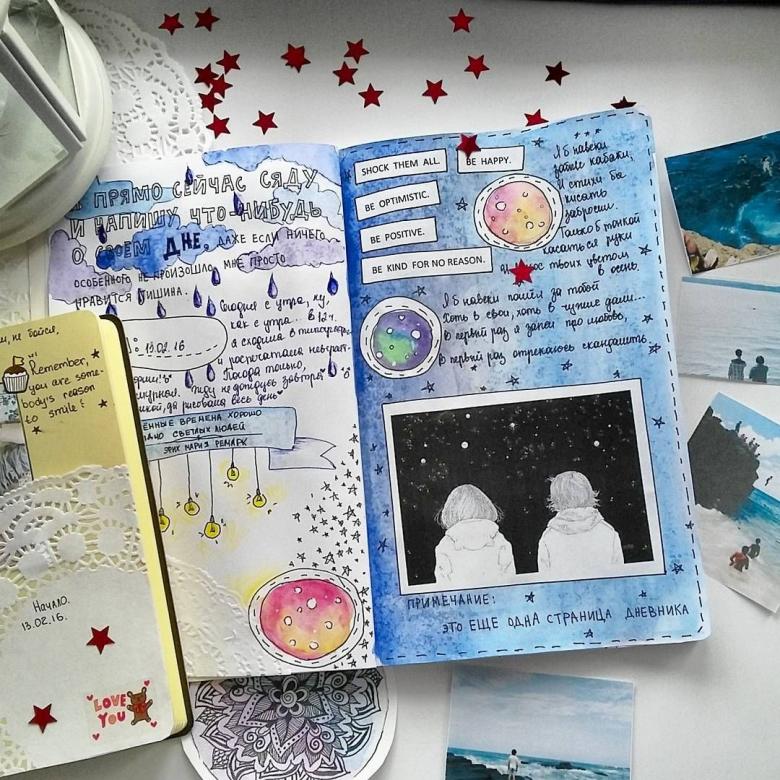 ПРЯМО СЕЙЧАС СЯДУ
И НАПИШУ ЧТО-НИБУДЬ
О СВОЕМ ДНЕ, ДАЖЕ ЕСЛИ НИЧЕГО
ОСОБЕННОГО НЕ ПРОИЗОШЛО. МНЕ ПРОСТО
НРАВИТСЯ ТИШИНА.
Сегодня с утра, ну,
как с утра.. в 12ч.
я сходила в типографию
и распечатала
13.02.16
Погода только,
Жду не дождусь завтра
да рисовала весь день
ВРЕМЕНА ХОРОШО
СВЕТЛЫХ ЛЮДЕЙ
ЭРИХ МАРИЯ РЕМАРК
SHOCK THEM ALL.
BE HAPPY.
BE OPTIMISTIC.
BE POSITIVE.
BE KIND FOR NO REASON.
Я б навеки
забыл кабаки,
И стихи бы
писать
забросил.
Только б тонкой
касаться руки
волос твоих цветом
в осень.
Я б навеки пошёл за тобой
Хоть в свои, хоть в чужие дали...
В первый раз я запел про любовь,
В первый раз отрекаюсь скандалить
ПРИМЕЧАНИЕ:
ЭТО ЕЩЕ ОДНА СТРАНИЦА ДНЕВНИКА
не бойся,
Remember,
you are some-
body's reason
to smile!
Начало.
13.02.16.
LOVE
YOU